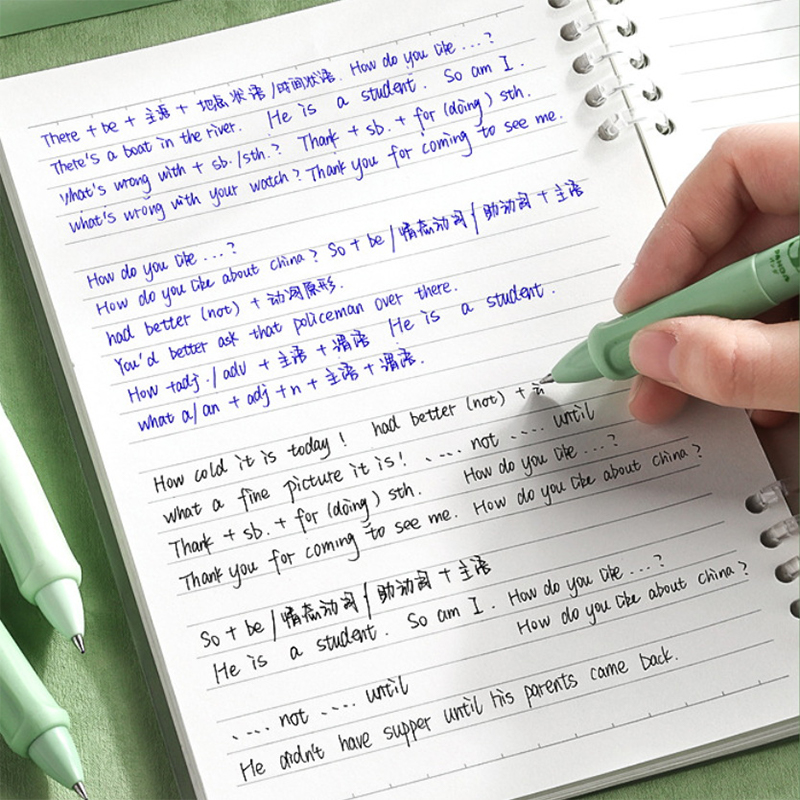 There + be + 主语 + 地点状语/时间状语. How do you like ...?
There's a boat in the river. He is a student. So am I.
What's wrong with + sb./sth.? Thank + sb. + for (doing) sth.
What's wrong with your watch? Thank you for coming to see me.
How do you like ...?
How do you like about china? So + be/情态动词/助动词+主语
had better (not) + 动词原形.
You'd better ask that policeman over there.
How +adj./adv + 主语 + 谓语 He is a student.
what a/an + adj +n + 主语 + 谓语.
How cold it is today! had better (not) +
what a fine picture it is! .... not .... until
Thank + sb. + for (doing) sth. How do you like ...?
Thank you for coming to see me. How do you like about china?
So + be/情态动词/助动词+主语
He is a student. So am I. How do you like ...?
How do you like about china?
.... not .... until
He didn't have supper until his parents came back.